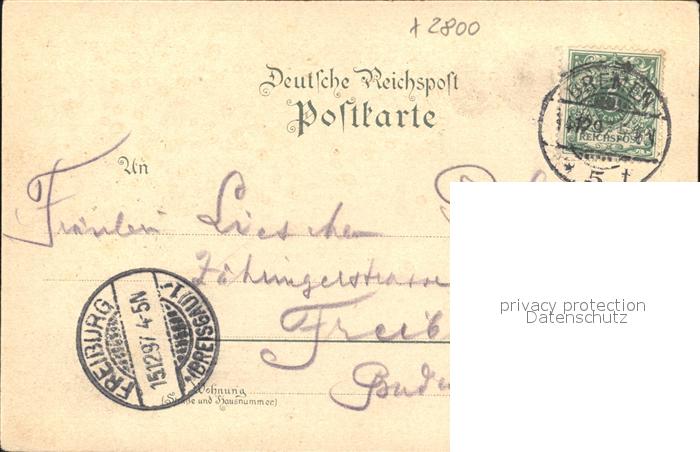 x 2800
Deutsche Reichspost
Postkarte
BREMEN
REICHSPOST
* 5 †
An
Fräulein Lieschen
Zähringerstrasse
Freib
Bade
FREIBURG
15.12.97 4-5N
(BREISGAU) 1.
Wohnung
(Straße und Hausnummer)
privacy protection
Datenschutz